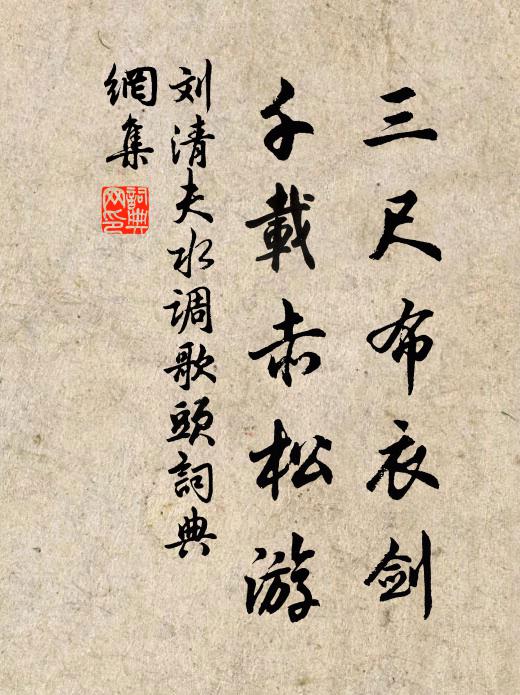 三尺布衣剑
千載赤松游
刘清夫水调歌頭詞典
網集
詞典网印